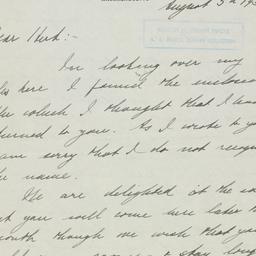 August 5th 193
ear Herb:-
In looking over my
les here I found the enclosed
the which I thought that I had
turned to you. As I wrote to yo
am sorry that I do not recog
he name.
We are delighted at the
at you will come here later th
month though we wish that you